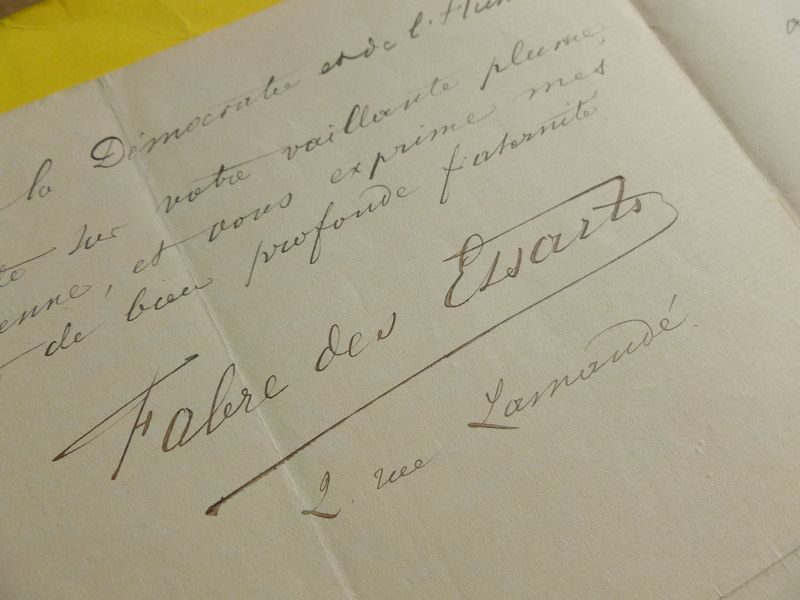 la Démocratie et de l'Hum
te sur votre vaillante plume,
enne, et vous exprime mes
de bien profonde fraternité
Fabre des Essarts
2. rue Lamandé.